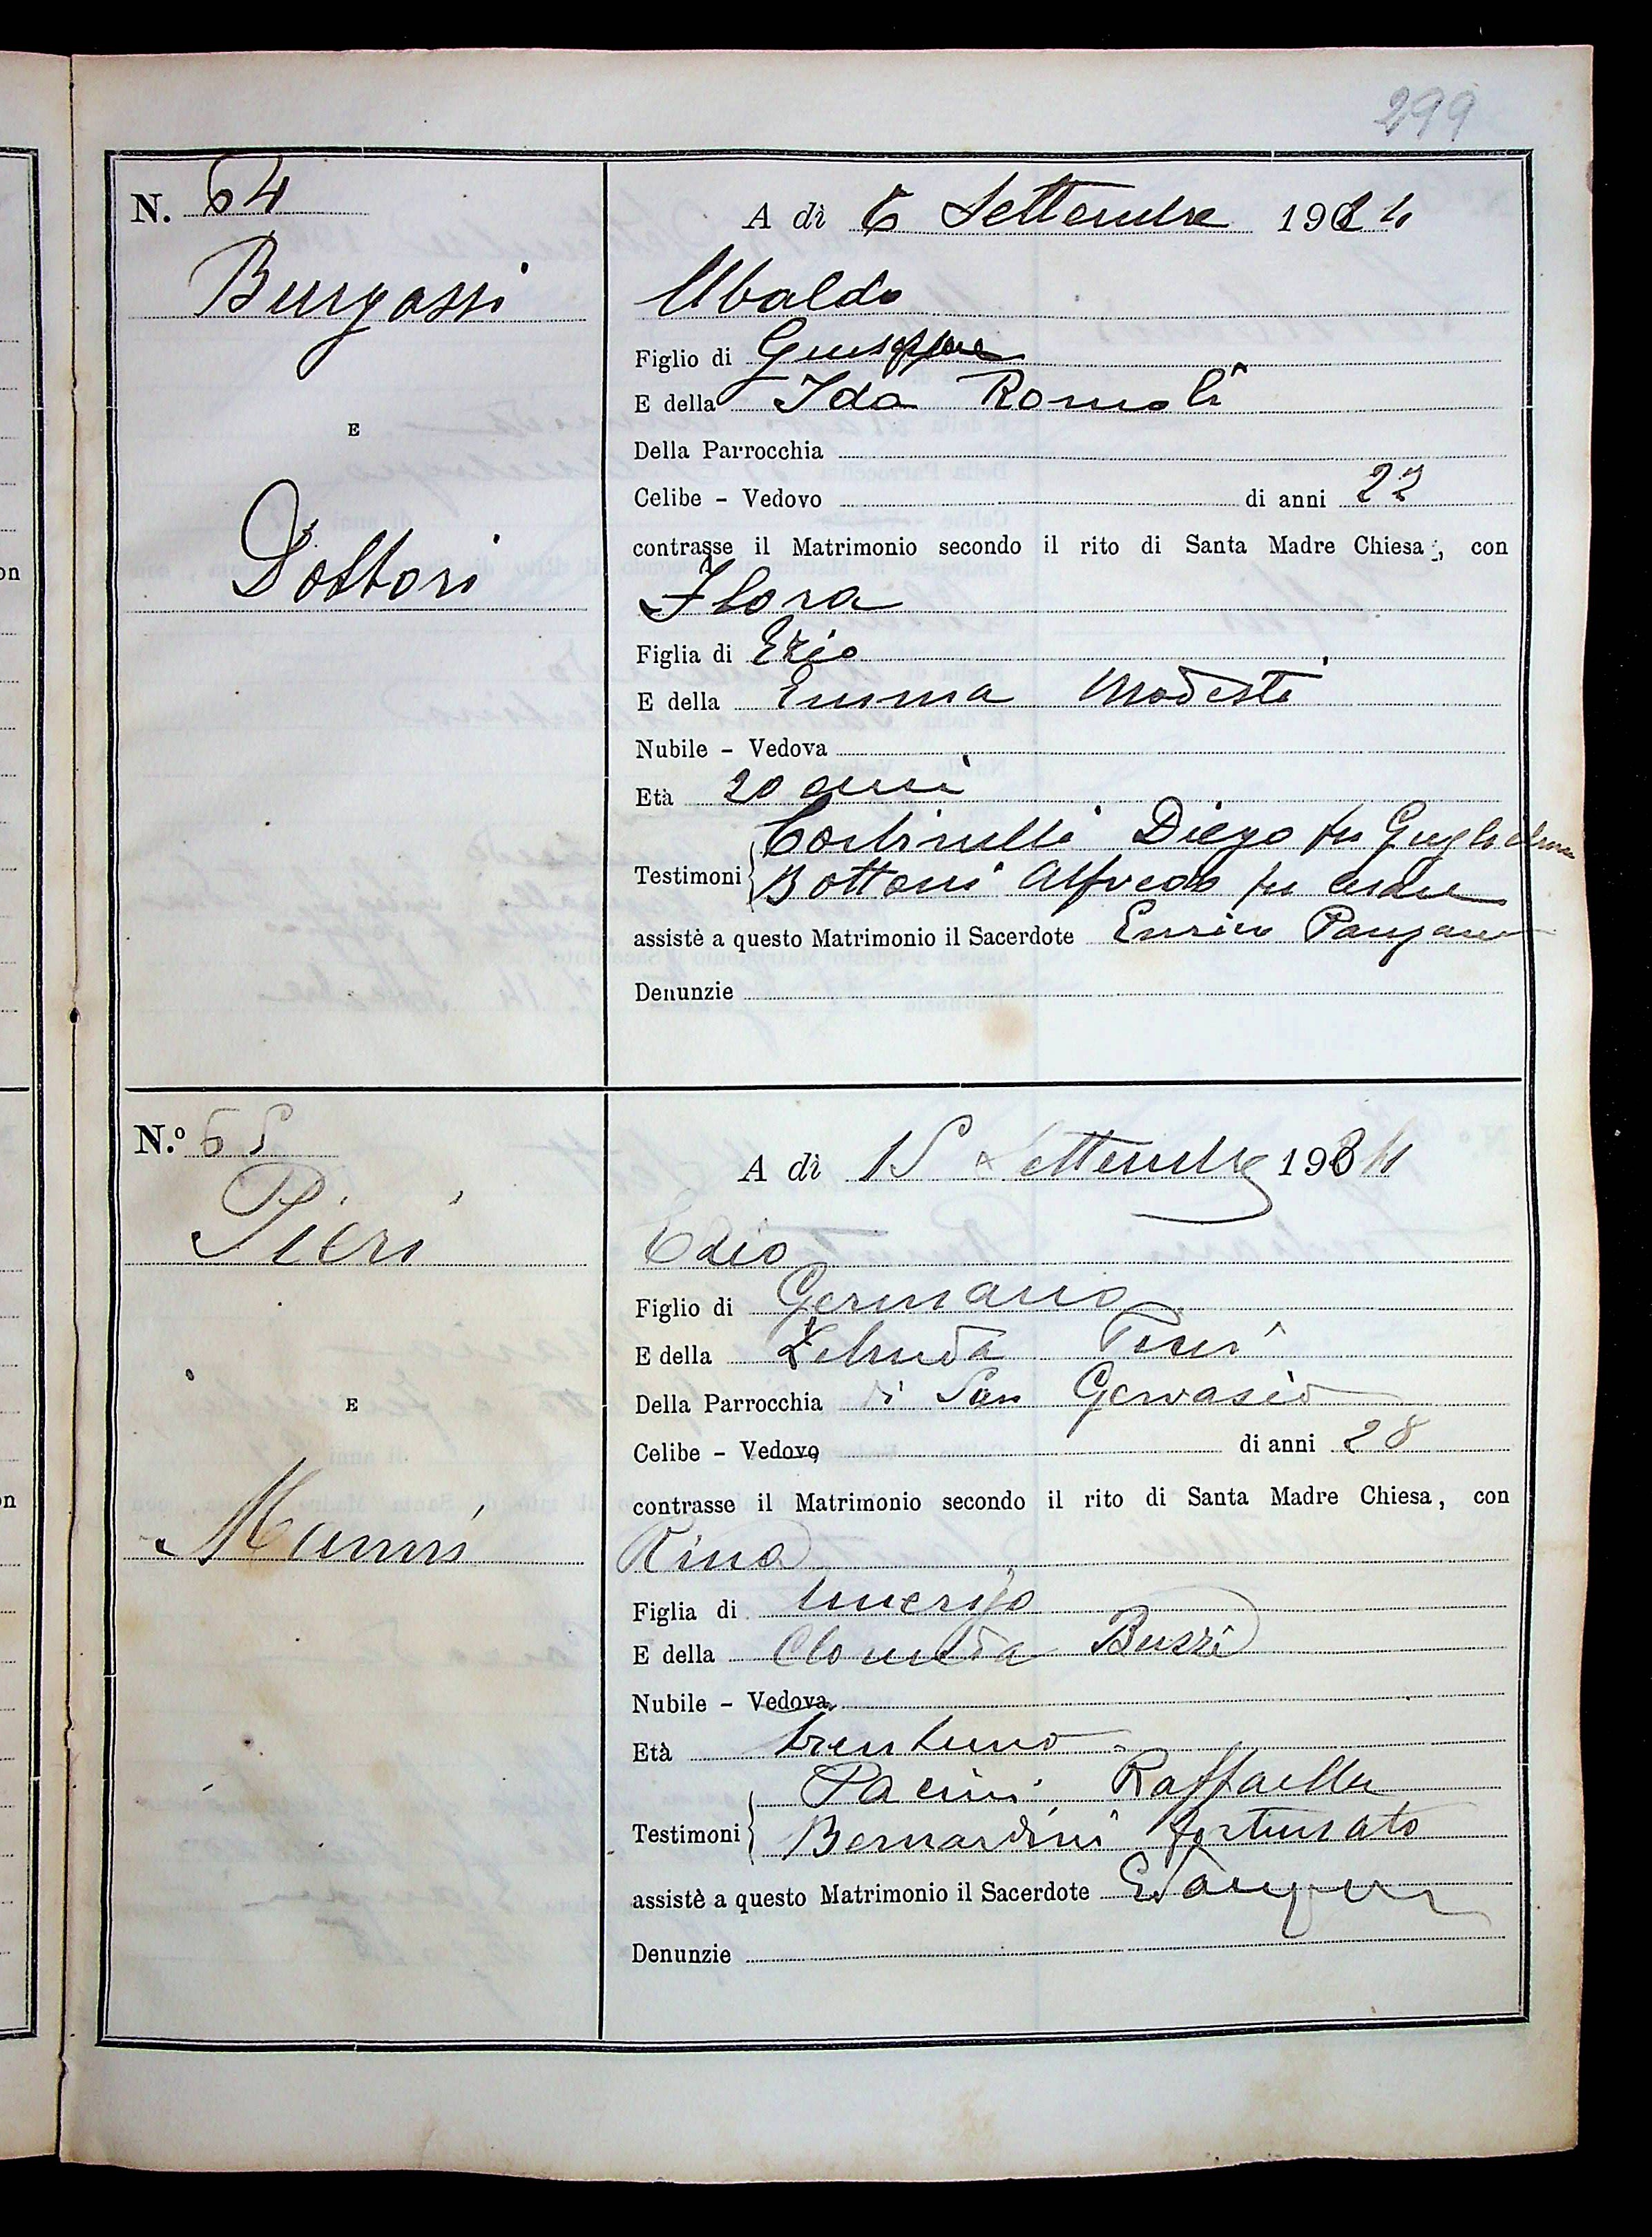 299
N. 64
A dì 6 Settembre 1924
Burgassi
Ubaldo
Figlio di Giuseppe
E della Ida Romoli
E
Della Parrocchia
Celibe - Vedovo di anni 22
contrasse il Matrimonio secondo il rito di Santa Madre Chiesa, con
Dottori
Flora
Figlia di Ezio
E della Emma Modesti
Nubile - Vedova
Età 20 anni
Cortinelli Diego fu Guglielmo
Testimoni Bottoni Alfredo fu
assistè a questo Matrimonio il Sacerdote Enrico
Denunzie
N.º 65
A dì 15 Settembre 19
Pieri
Ezio
Figlio di Germano
E della Zelinda
Della Parrocchia di San Gervasio
E
Celibe - Vedovo di anni 28
contrasse il Matrimonio secondo il rito di Santa Madre Chiesa, con
Nanni
Rina
Figlia di
E della Clorinda Buzzi
Nubile - Vedova
Età trentuno
Pacini Raffaella
Testimoni Bernardini fortunato
assistè a questo Matrimonio il Sacerdote
Denunzie